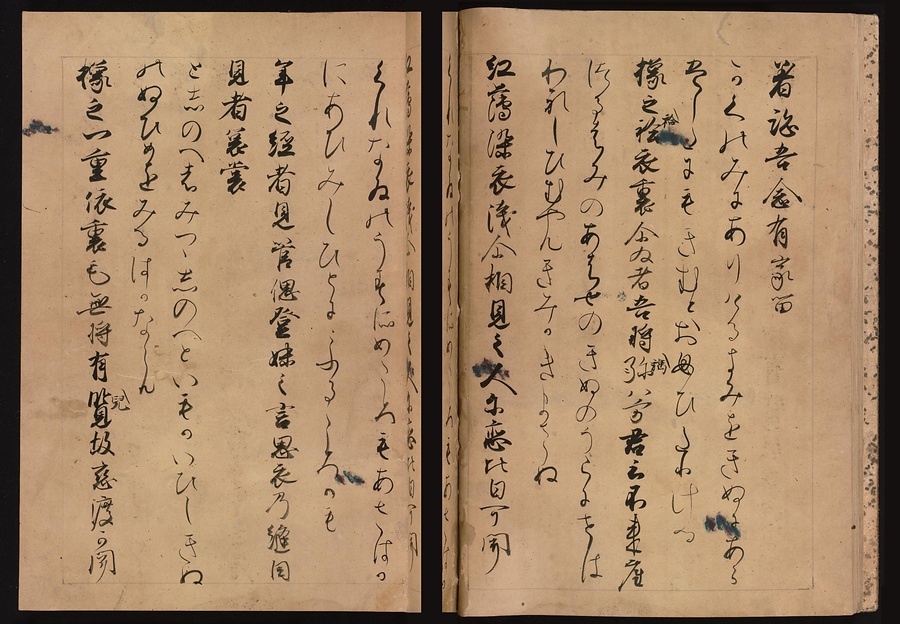 著跡吾念有家留
かくのみにありけるきみをきぬにあら
はしたにもきむとおもひ
橡之袷衣裏尓為者吾将強八方君之不来座
つるはみのあはせのきぬのうらにせは
われしひむやもきみかきまさぬ
紅薄染衣浅尓相見之人尓恋比日可聞
くれなゐのうすそめころもあさはか
にあひみしひとにこふるころかも
年之経者見管偲登妹之言思衣乃縫目
見者哀裳
としのへはみつゝしのへといもかいひしきぬ
のぬひめをみるはかなしも
橡之一重衣裏毛無将有児故恋渡可聞